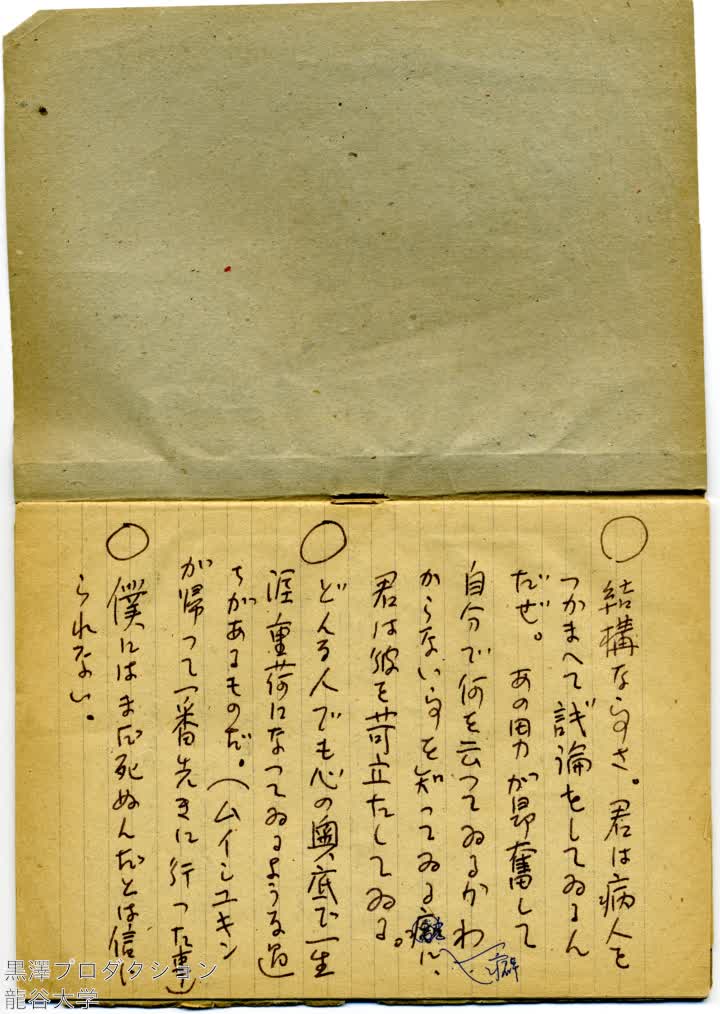 ○ 結構な事さ。君は病人を
つかまへて議論をしてゐるん
だぜ。あの男が昂奮して
自分で何を云つてゐるかわ
からない事を知ってゐる癖に、
癖
君は彼を苛立たしてゐる。
○ どんな人でも心の奥底で一生
涯重荷になってゐるような過
ちがあるものだ。(ムイシユキン
が帰って一番先きに行った事)
○ 僕にはまだ死ぬんだとは信じ
られない。
黒澤プロダクション
龍谷大学